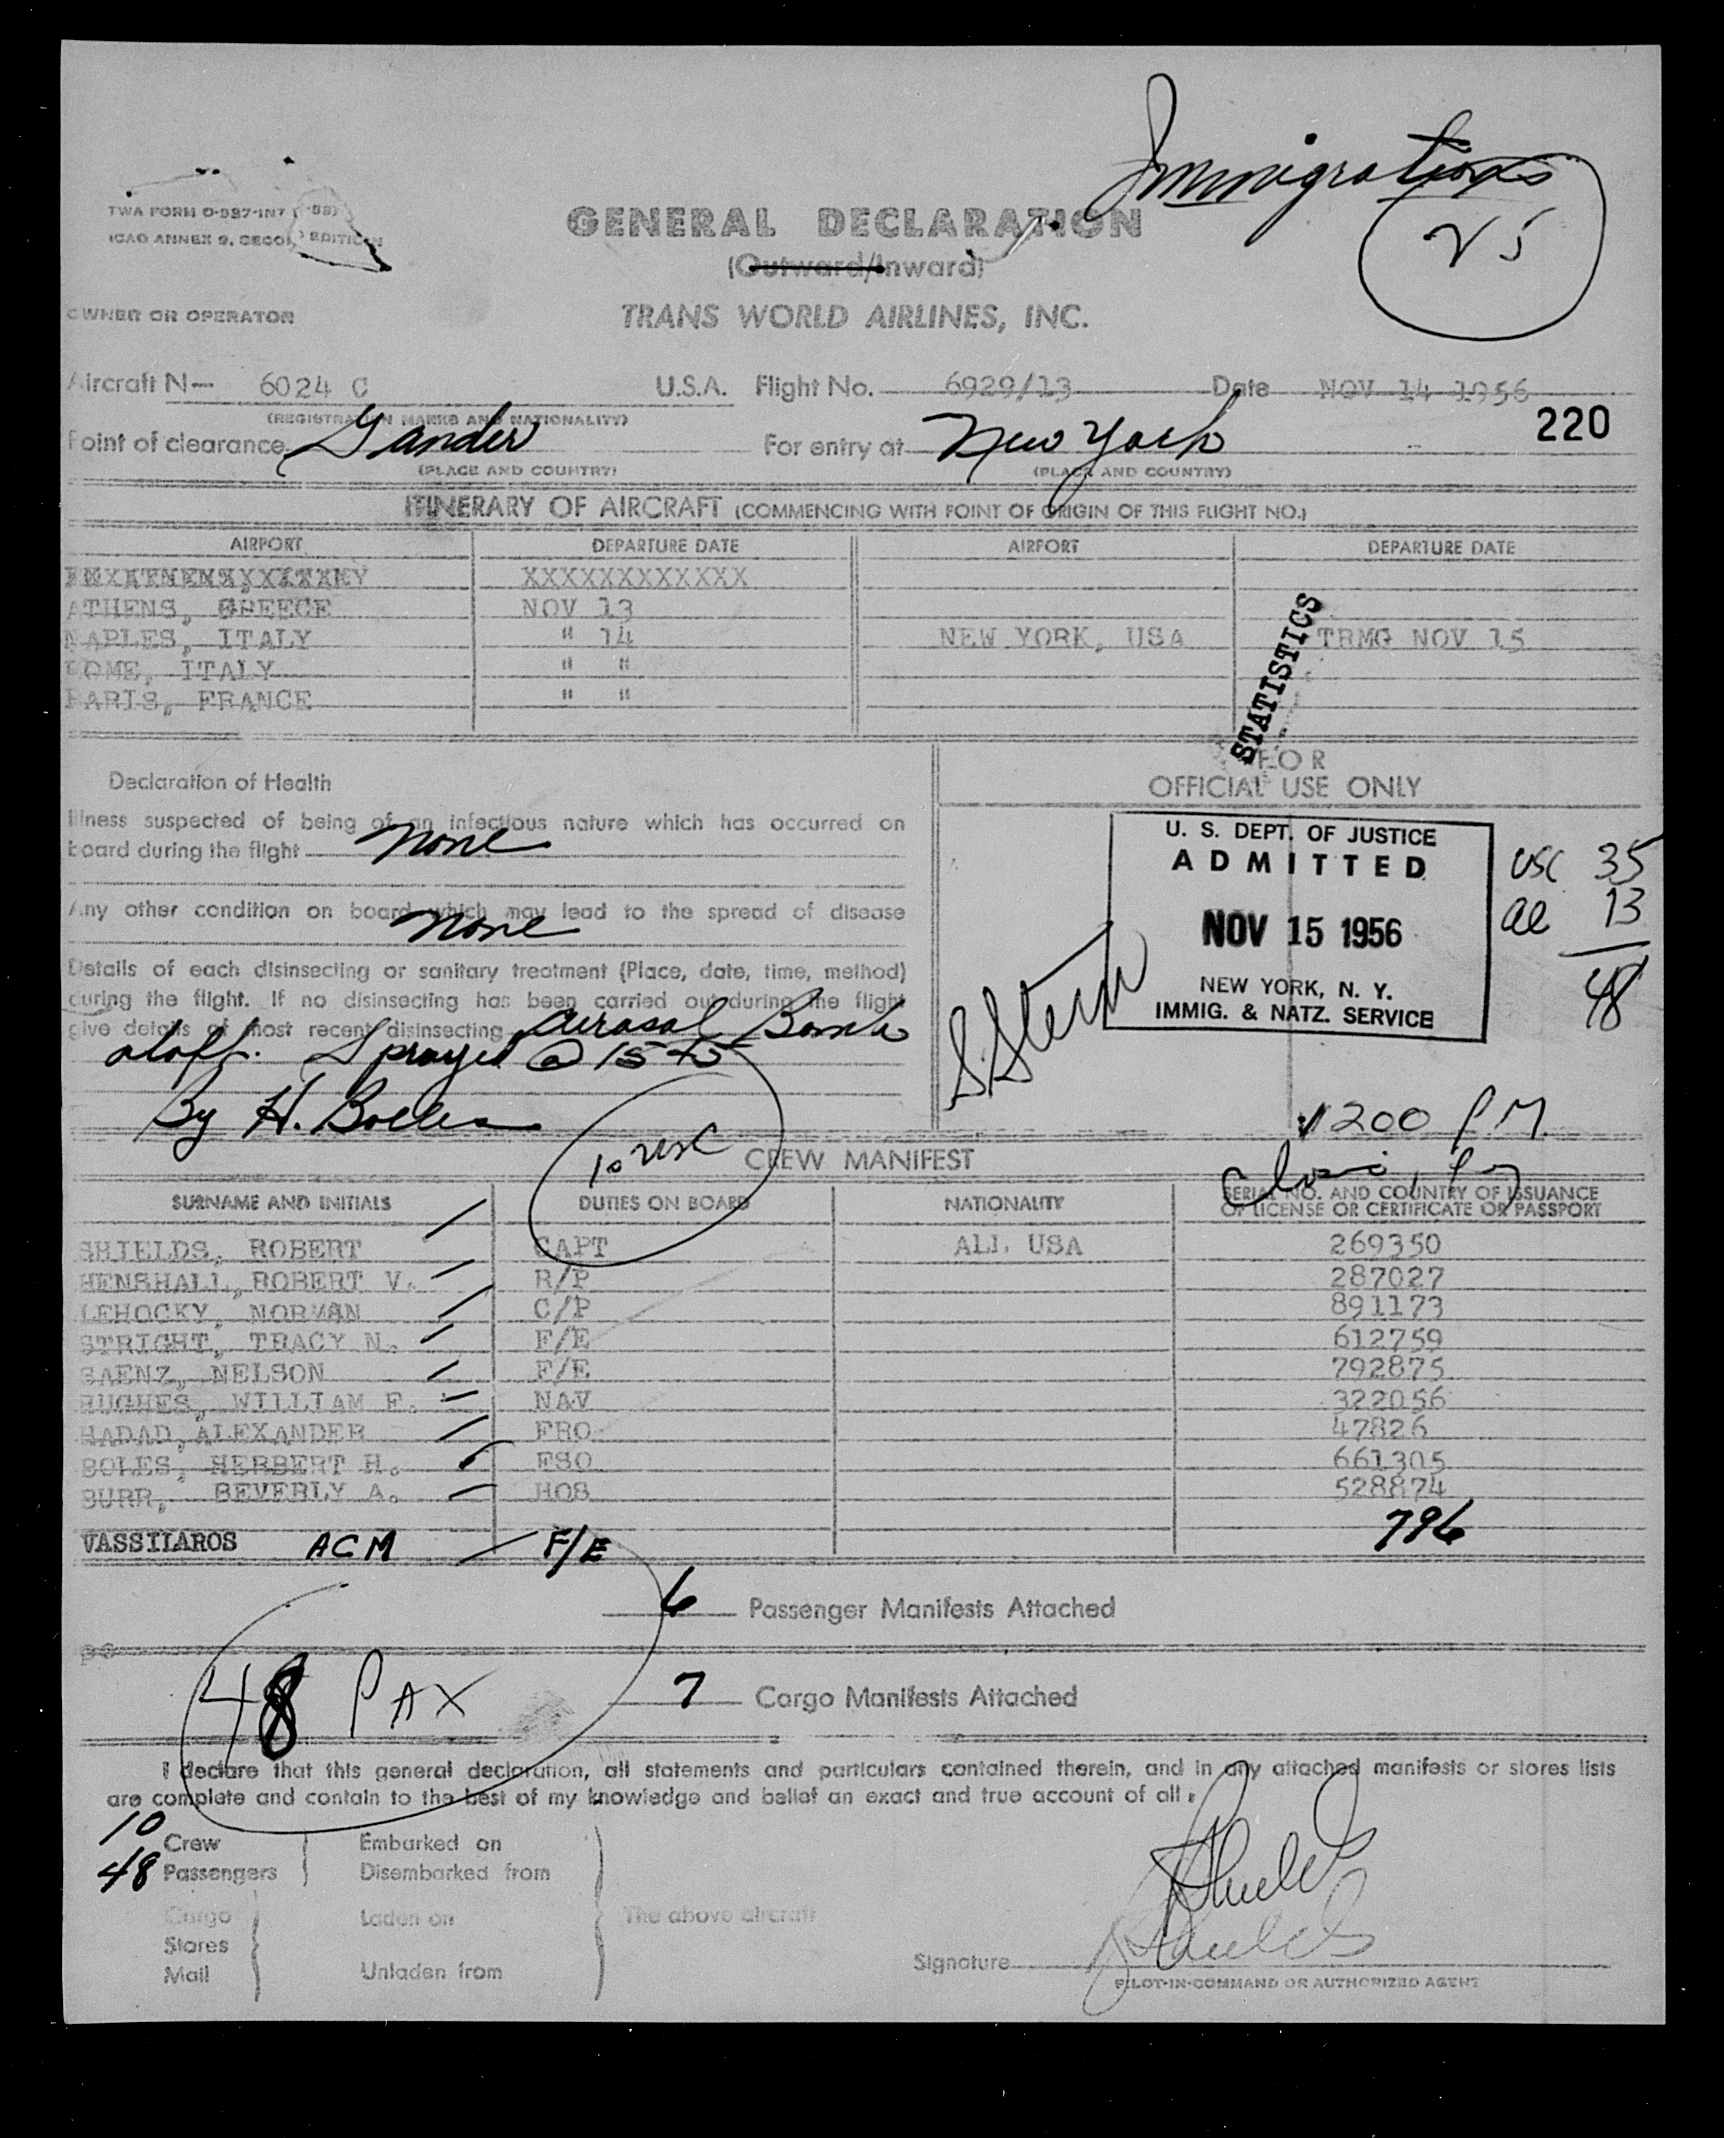 Immigrations
25
TWA FORM O-937-IN7
ICAO ANNEX 9, SECOND EDITION
GENERAL DECLARATION
(Outward/Inward)
OWNER OR OPERATOR
TRANS WORLD AIRLINES, INC.
Aircraft N— 6024 C U.S.A. Flight No. 6929/13 Date NOV 14 1956
(REGISTRATION MARKS AND NATIONALITY)
220
Point of clearance Gander For entry at New York
(PLACE AND COUNTRY) (PLACE AND COUNTRY)
ITINERARY OF AIRCRAFT (COMMENCING WITH POINT OF ORIGIN OF THIS FLIGHT NO.)
AIRPORT DEPARTURE DATE AIRPORT DEPARTURE DATE
XXXXXXXXXXXX
ATHENS, GREECE NOV 13
NAPLES, ITALY " 14 NEW YORK, USA TRMG NOV 15
ROME, ITALY " "
PARIS, FRANCE " "
STATISTICS
FOR
OFFICIAL USE ONLY
Declaration of Health
Illness suspected of being of an infectious nature which has occurred on
board during the flight None
Any other condition on board which may lead to the spread of disease
None
Details of each disinsecting or sanitary treatment (Place, date, time, method)
during the flight. If no disinsecting has been carried out during the flight
give details of most recent disinsecting Aerosal Bomb
aloft. Sprayed @ 15
By H. Boles
U. S. DEPT. OF JUSTICE
ADMITTED
NOV 15 1956
NEW YORK, N. Y.
IMMIG. & NATZ. SERVICE
USC 35
al 13
48
S. Stern
1200 P.M.
10 usc
CREW MANIFEST
SURNAME AND INITIALS DUTIES ON BOARD NATIONALITY SERIAL NO. AND COUNTRY OF ISSUANCE
OF LICENSE OR CERTIFICATE OR PASSPORT
SHIELDS, ROBERT CAPT ALL USA 269350
HENSHALL, ROBERT V. R/P 287027
LEHOCKY, NORMAN C/P 891173
STRIGHT, TRACY N. F/E 612759
SAENZ, NELSON F/E 792875
HUGHES, WILLIAM F. NAV 322056
HADAD, ALEXANDER FRO 47826
BOLES, HERBERT H. FSO 661305
BURR, BEVERLY A. HOS 528874
VASSILAROS ACM F/E 796
6 Passenger Manifests Attached
48 PAX
7 Cargo Manifests Attached
I declare that this general declaration, all statements and particulars contained therein, and in any attached manifests or stores lists
are complete and contain to the best of my knowledge and belief an exact and true account of all
10 Crew Embarked on
48 Passengers Disembarked from
Cargo Laden on The above aircraft
Stores
Mail Unladen from
Signature Shields
PILOT-IN-COMMAND OR AUTHORIZED AGENT